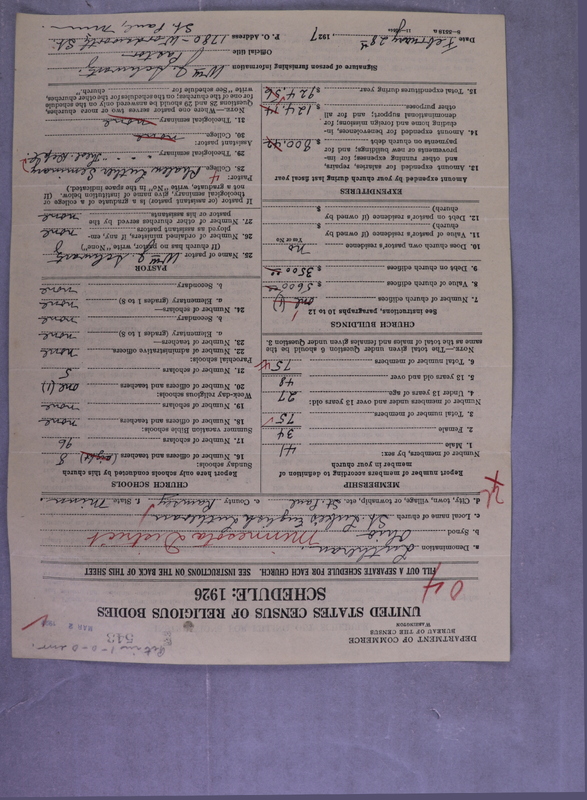 DEPARTMENT OF COMMERCE
BUREAU OF THE CENSUS
WASHINGTON
543
MAR 2
UNITED STATES CENSUS OF RELIGIOUS BODIES
SCHEDULE: 1926
FILL OUT A SEPARATE SCHEDULE FOR EACH CHURCH. SEE INSTRUCTIONS ON THE BACK OF THIS SHEET
a. Denomination Lutheran
b. Synod Ohio Minnesota District
c. Local name of church St. Lukes English Lutheran
d. City, town, village, or township, etc. St. Paul e. County Ramsey f. State Minn
MEMBERSHIP
Report number of members according to definition of member in your church
Number of members, by sex:
1. Male 41
2. Female 34
3. Total number of members. 75
Number of members under and over 13 years old:
4. Under 13 years of age. 27
5. 13 years old and over. 48
6. Total number of members. 75
NOTE.—The total given under Question 6 should be the same as the total of males and females given under Question 3.
CHURCH BUILDINGS
See Instructions, paragraphs 10 to 12
7. Number of church edifices one (1)
8. Value of church edifices $ 5600.00
9. Debt on church edifices $ 3500.00
10. Does church own pastor's residence no
Yes or No
11. Value of pastor's residence (if owned by church) $
12. Debt on pastor's residence (if owned by church) $
EXPENDITURES
Amount expended for your church during last fiscal year
13. Amount expended for salaries, repairs, and other running expenses; for improvement or new buildings; and for payments on church debt $ 800.42
14. Amount expended for benevolences, including home and foreign missions; for denominational support; and for all other purposes. $ 124.14
15. Total expenditures during year $ 924.56
CHURCH SCHOOLS
Report here only schools conducted by this church
Sunday schools:
16. Number of officers and teachers (eight) 8
17. Number of scholars 96
Summer vacation Bible schools:
18. Number of officers and teachers none
19. Number of scholars none
Week-day religious schools:
20. Number of officers and teachers one (1)
21. Number of scholars 5
Parochial schools:
22. Number of administrative officers none
23. Number of teachers—
a. Elementary (grades 1 to 8) none
b. Secondary none
24. Number of scholars—
a. Elementary (grades 1 to 8) none
b. Secondary none
PASTOR
25. Name of pastor Wm J. Schwartz
(If church has no pastor, write "None")
26. Number of ordained ministers, if any, employed as assistants to pastor none
27. Number of other churches served by the pastor or his assistants none
If pastor (or assistant pastor) is a graduate of a college or theological seminary, give name of institution below. (If not a graduate, write "No" in the space indicated.)
Pastor:
28. College Luther Seminary
29. Theological seminary " "
Assistant pastor:
30. College none
31. Theological seminary none
NOTE.—Where a pastor serves two or more churches, Questions 28 and 29 should be answered only on the schedule for one of the churches; on the schedules for the other churches, write "See schedule for church."
Signature of person furnishing information Wm J. Schwartz
Official title Pastor
Date February 28th 1927 P. O. Address 1780 – Wordsworth St.
St. Paul, Minn